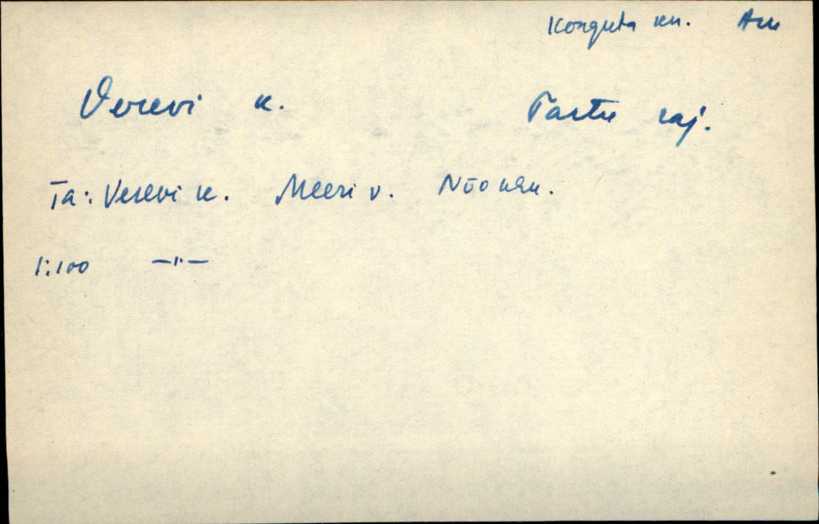 Konguta kn.
Verevi k. Tartu raj.
Ta: Verevi k. Meeri v. Nõo khk.
1:100 —"—